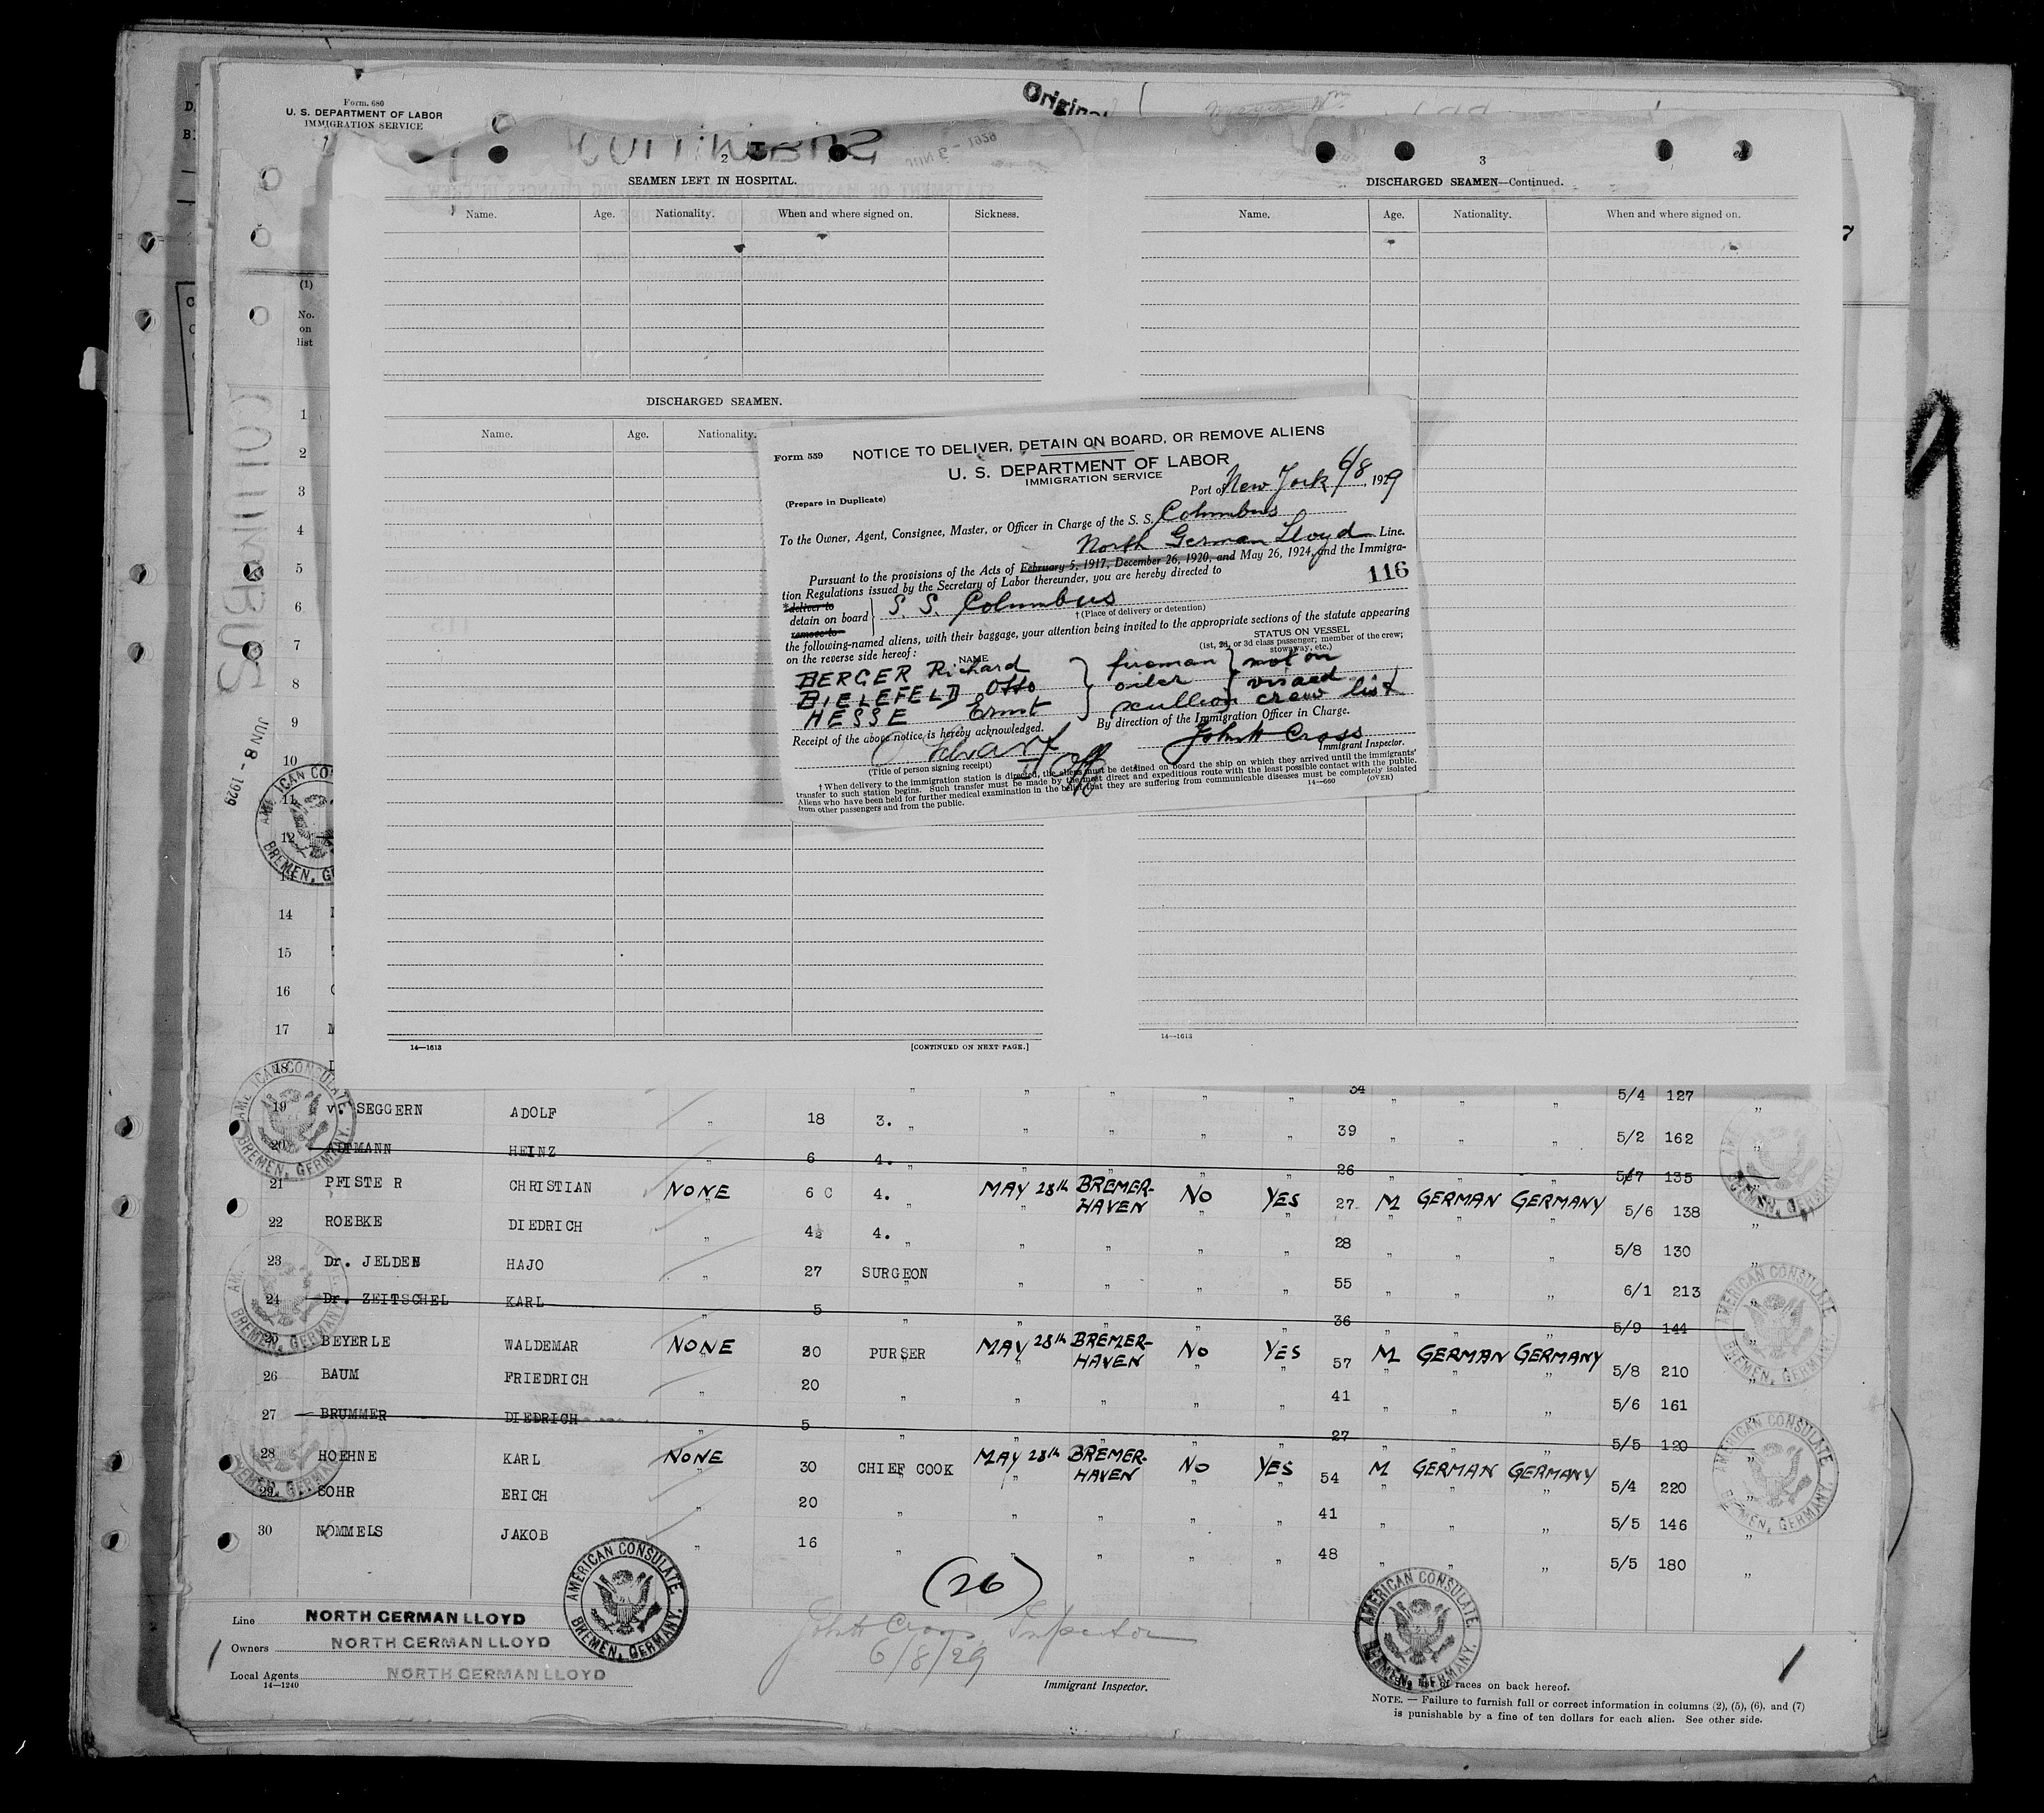 Form. 680
U. S. DEPARTMENT OF LABOR
IMMIGRATION SERVICE
Original
COLUMBUS
JUN 8 - 1929
(1)
No.
on
list
1
2
3
4
5
6
7
8
9
10
11
12
14
15
16
17
18
2
SEAMEN LEFT IN HOSPITAL.
Name. Age. Nationality. When and where signed on. Sickness.
DISCHARGED SEAMEN.
Name. Age. Nationality.
14—1613 [CONTINUED ON NEXT PAGE.]
3
DISCHARGED SEAMEN—Continued.
Name. Age. Nationality. When and where signed on.
14—1613
Form 559 NOTICE TO DELIVER, DETAIN ON BOARD, OR REMOVE ALIENS
U. S. DEPARTMENT OF LABOR
IMMIGRATION SERVICE
(Prepare in Duplicate)
Port of New York 6/8, 1929
To the Owner, Agent, Consignee, Master, or Officer in Charge of the S. S. Columbus
North German Lloyd Line.
Pursuant to the provisions of the Acts of February 5, 1917, December 26, 1920, and May 26, 1924, and the Immigra-
tion Regulations issued by the Secretary of Labor thereunder, you are hereby directed to 116
*deliver to
detain on board } S. S. Columbus
remove to
†(Place of delivery or detention)
the following-named aliens, with their baggage, your attention being invited to the appropriate sections of the statute appearing
on the reverse side hereof:
STATUS ON VESSEL
(1st, 2d, or 3d class passenger; member of the crew;
stowaway, etc.)
NAME
BERGER Richard } fireman } not on
BIELEFELD Otto } oiler } visaed
HESSE Ernst } scullion } crew list
Receipt of the above notice is hereby acknowledged. By direction of the Immigration Officer in Charge.
John H Cross
Immigrant Inspector.
(Title of person signing receipt) II Off
†When delivery to the immigration station is directed, the aliens must be detained on board the ship on which they arrived until the immigrants'
transfer to such station begins. Such transfer must be made by the most direct and expeditious route with the least possible contact with the public.
Aliens who have been held for further medical examination in the belief that they are suffering from communicable diseases must be completely isolated
from other passengers and from the public. 14—660 (OVER)
" " " " " 34 " " " 5/4 127 "
19 v. SEGGERN ADOLF " 18 3. " " " " " 39 " " " 5/2 162 "
20 HEINZ " 6 4. " " " " " 26 " " " 5/7 135 "
21 PFISTER CHRISTIAN NONE 6 C 4. " MAY 28th BREMER-HAVEN NO YES 27 M GERMAN GERMANY 5/6 138 "
22 ROEBKE DIEDRICH " 4½ 4. " " " " " 28 " " " 5/8 130 "
23 Dr. JELDEN HAJO " 27 SURGEON " " " " 55 " " " 6/1 213 "
24 Dr. ZEITSCHEL KARL " 5 " " " " " 36 " " " 5/9 144 "
25 BEYERLE WALDEMAR NONE 30 PURSER MAY 28th BREMER-HAVEN NO YES 57 M GERMAN GERMANY 5/8 210 "
26 BAUM FRIEDRICH " 20 " " " " " 41 " " " 5/6 161 "
27 BRUMMER DIEDRICH " 5 " " " " " 27 " " " 5/5 120 "
28 HOEHNE KARL NONE 30 CHIEF COOK MAY 28th BREMER-HAVEN NO YES 54 M GERMAN GERMANY 5/4 220 "
29 SOHR ERICH " 20 " " " " " 41 " " " 5/5 146 "
30 NOMMELS JAKOB " 16 " " " " " 48 " " " 5/5 180 "
(26)
Line NORTH GERMAN LLOYD
Owners NORTH GERMAN LLOYD
Local Agents NORTH GERMAN LLOYD
14—1240
AMERICAN CONSULATE
BREMEN, GERMANY.
John H Cross Inspector
6/8/29
Immigrant Inspector.
AMERICAN CONSULATE
BREMEN, GERMANY.
races on back hereof.
NOTE. — Failure to furnish full or correct information in columns (2), (5), (6), and (7)
is punishable by a fine of ten dollars for each alien. See other side.